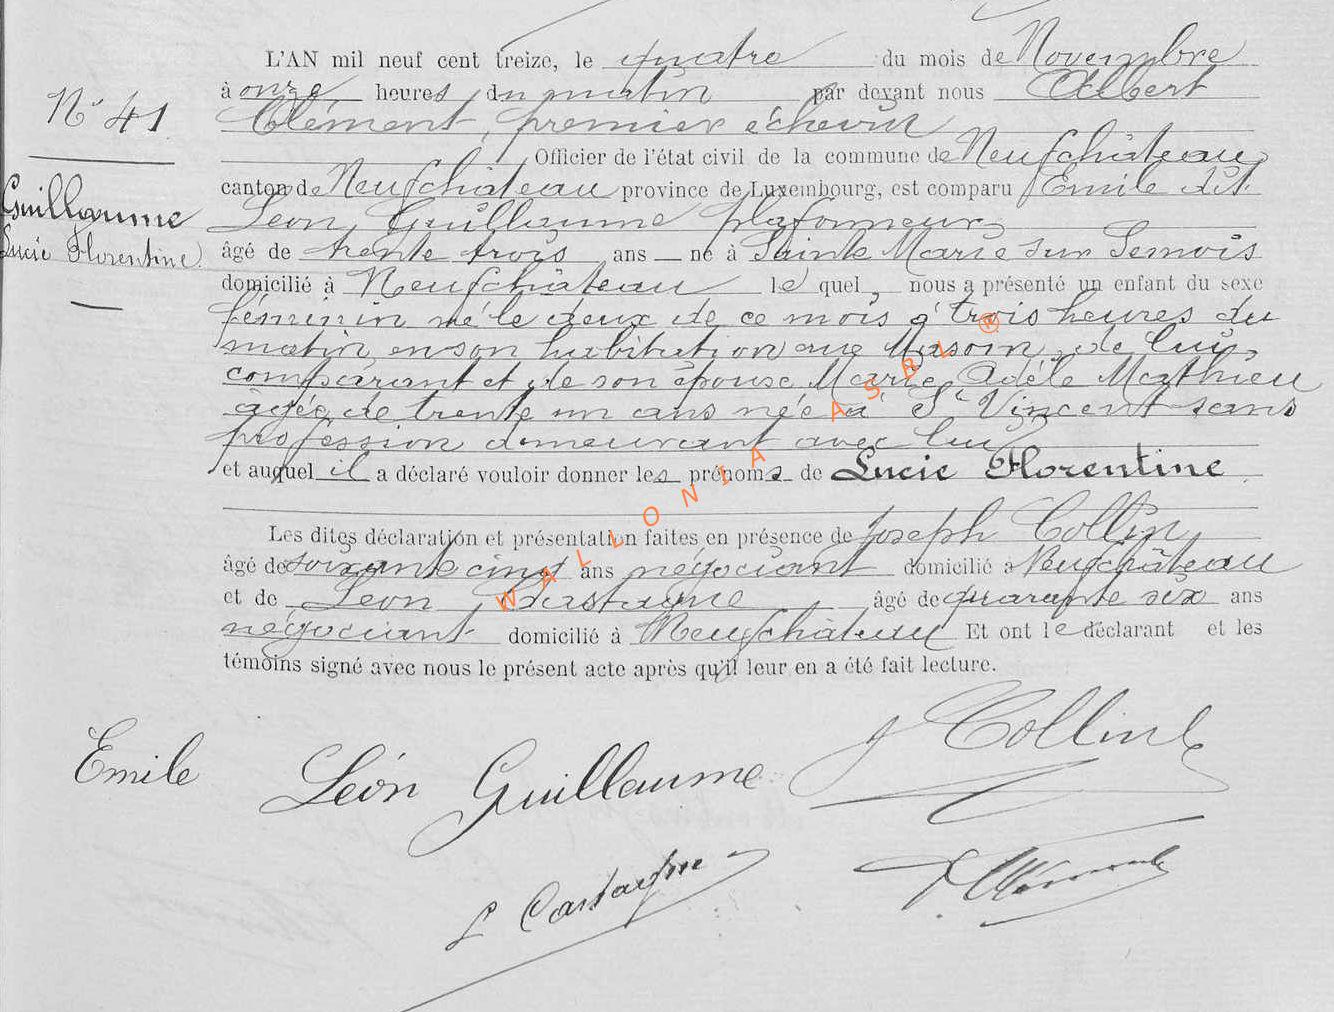 L'AN mil neuf cent treize, le quatre du mois de Novembre
à onze heures du matin par devant nous Albert
Clément, premier échevin
N° 41
Officier de l'état civil de la commune de Neufchâteau,
canton de Neufchâteau province de Luxembourg, est comparu Emile dit
Guillaume
Léon Guillaume plafonneur
Lucie Florentine.
âgé de trente trois ans né à Sainte Marie sur Semois
domicilié à Neufchâteau lequel, nous a présenté un enfant du sexe
féminin né le deux de ce mois à trois heures du
matin, en son habitation rue de lui
comparant et de son épouse Marie Adèle Mathieu
âgée de trente un ans née à St Vincent sans
profession demeurant avec lui
et auquel il a déclaré vouloir donner les prénoms de Lucie Florentine
Les dites déclaration et présentation faites en présence de Joseph Collin
âgé de soixante cinq ans négociant domicilié à Neufchâteau
et de Léon Castagne âgé de quarante six ans
négociant domicilié à Neufchâteau Et ont le déclarant et les
témoins signé avec nous le présent acte après qu'il leur en a été fait lecture.
J Collin
Emile Léon Guillaume
L Castagne
Clément
WALLONIA ASBL ®